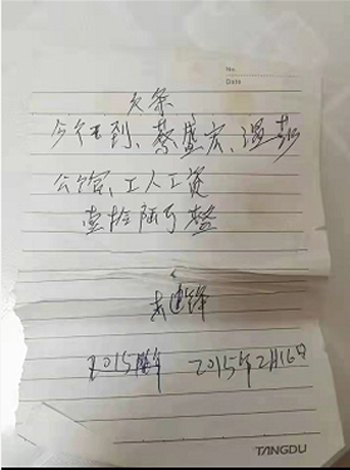 No.
Date
欠条
今欠到、蔡盛宏、温莎
公馆、工人工资
壹拾陆万整
2015年2月16日
TANGDU